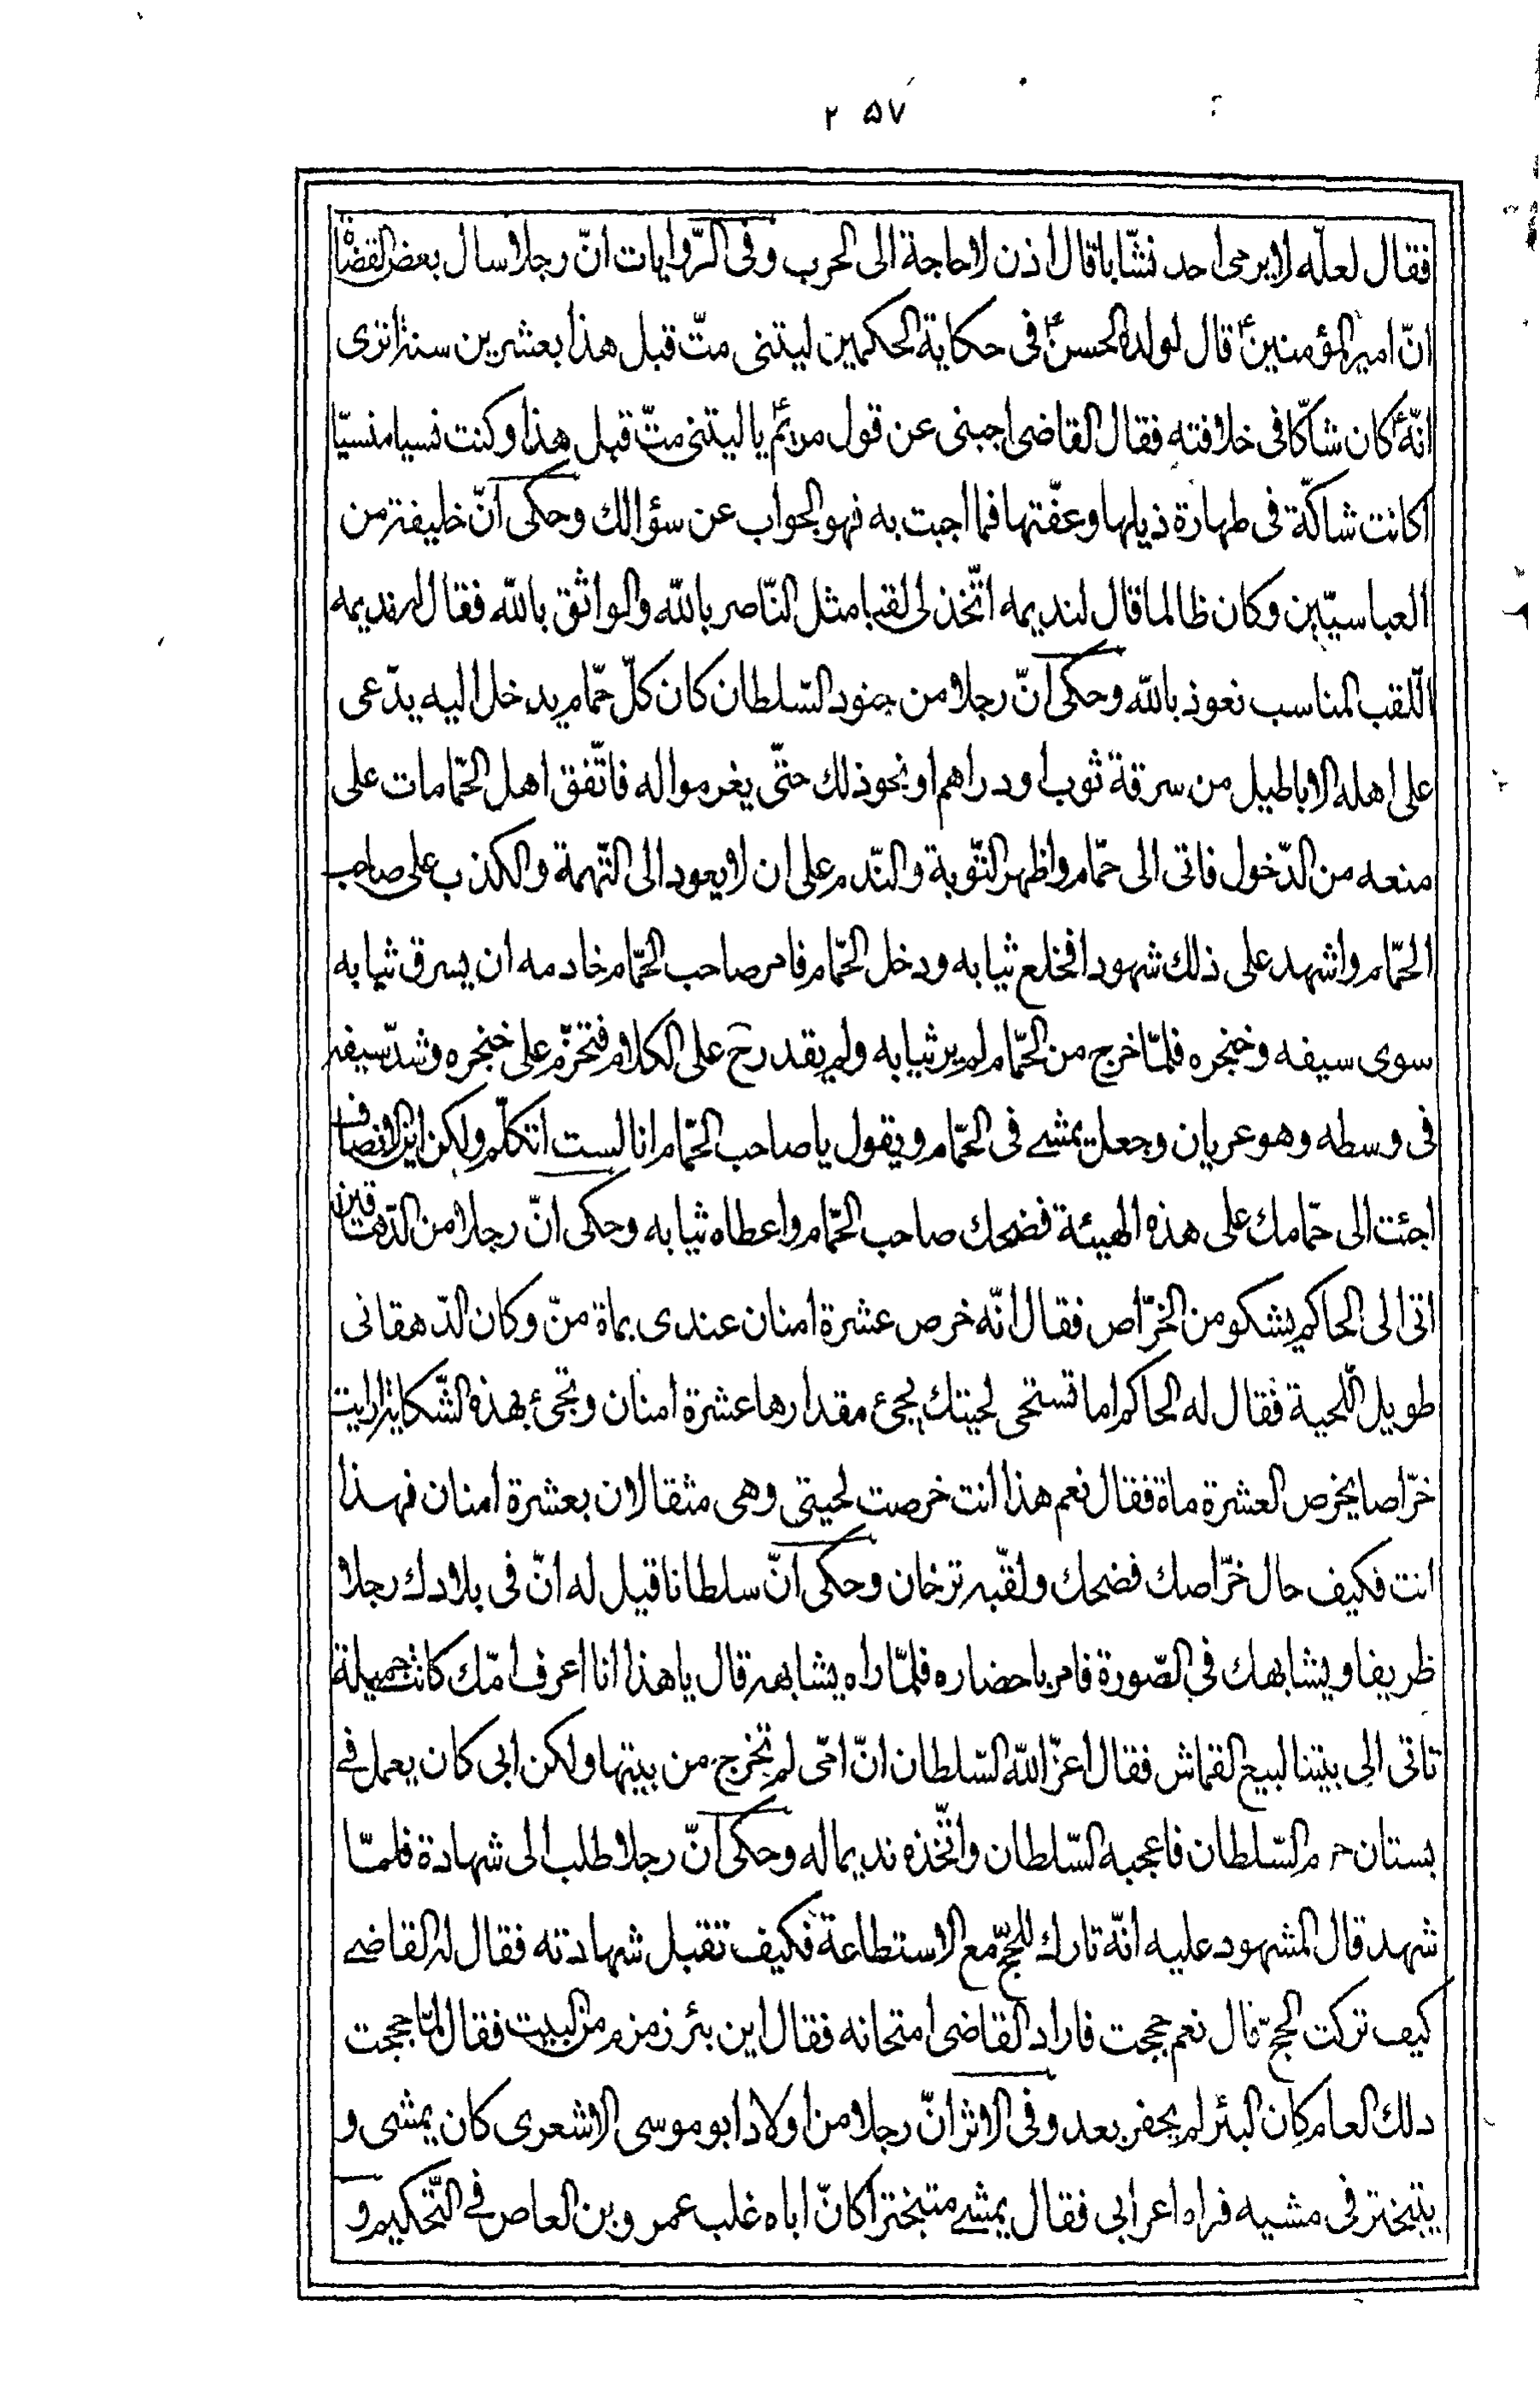 ٢٥٧
فقال لعلّه لا يرمى احد نشّابا قال اذن لا حاجة الى الحرب وفى الرّوايات انّ رجلا سال بعض القضاة
انّ امير المؤمنينؑ قال لولده الحسنؑ فى حكاية الحكمين ليتنى متّ قبل هذا بعشرين سنة اترى
انّهؑ كان شاكّا فى خلافته فقال القاضى اجبنى عن قول مريمؑ يا ليتنى متّ قبل هذا وكنت نسيا منسيّا
اكانت شاكّة فى طهارة ذيلها وعفّتها فما اجبت به فهو الجواب عن سؤالك وحكى انّ خليفة من
العباسيّين وكان ظالما قال لنديمه اتّخذ لى لقبا مثل النّاصر بالله والواثق بالله فقال له نديمه
اللّقب المناسب نعوذ بالله وحكى انّ رجلا من جنود السّلطان كان كلّ حمّام يدخل اليه يدّعى
على اهله الاباطيل من سرقة ثوب او دراهم او نحو ذلك حتّى يغرموا له فاتّفق اهل الحمّامات على
منعه من الدّخول فاتى الى حمّام واظهر التّوبة والنّدم على ان لا يعود الى التّهمة والكذب على صاحب
الحمّام واشهد على ذلك شهودا فخلع ثيابه ودخل الحمّام فامر صاحب الحمّام خادمه ان يسرق ثيابه
سوى سيفه وخنجره فلمّا خرج من الحمّام لم ير ثيابه ولم يقدر ح على الكلام فتحزّم على خنجره وشدّ سيفه
فى وسطه وهو عريان وجعل يمشى فى الحمّام ويقول يا صاحب الحمّام انا لست اتكلّم ولكن اين الانصاف
اجئت الى حمّامك على هذه الهيئة فضحك صاحب الحمّام واعطاه ثيابه وحكى انّ رجلا من الدّهاقين
اتى الى الحاكم يشكو من الخرّاص فقال انّه خرص عشرة امنان عندى بماة منّ وكان الدّهقانى
طويل اللّحية فقال له الحاكم اما تستحى لحيتك يجئ مقدارها عشرة امنان وتجئ بهذه الشّكاية ارايت
خرّاصا يخرص العشرة ماة فقال نعم هذا انت خرصت لحيتى وهى مثقالان بعشرة امنان فهذا
انت فكيف حال خرّاصك فضحك ولقّبه ترخان وحكى انّ سلطانا قيل له انّ فى بلادك رجلا
ظريفا ويشابهك فى الصّورة فامر باحضاره فلمّا راه يشابهه قال يا هذا انا اعرف امّك كانت جميلة
تاتى الى بيتنا لبيع القماش فقال اعزّ الله السّلطان انّ امّى لم تخرج من بيتها ولكن ابى كان يعمل فى
بستان حرم السّلطان فاعجبه السّلطان واتّخذه نديما له وحكى انّ رجلا طلب الى شهادة فلمّا
شهد قال المشهود عليه انّه تارك للحجّ مع الاستطاعة فكيف تقبل شهادته فقال له القاضى
كيف تركت الحجّ قال نعم حججت فاراد القاضى امتحانه فقال اين بئر زمزم من البيت فقال لمّا حججت
ذلك العام كان البئر لم يحفر بعد وفى الاثر انّ رجلا من اولاد ابو موسى الاشعرى كان يمشى و
يتبختر فى مشيه فراه اعرابى فقال يمشى متبخترا كانّ اباه غلب عمرو بن العاص فى التّحكيم و